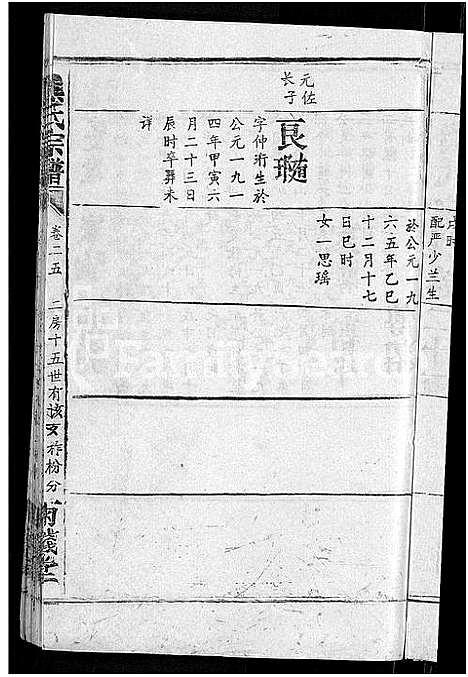 戌时
配严少兰生
於公元一九
六五年乙巳
十二月十七
日巳时
女一思瑶
元佐
长子
良
字仲珩生於
公元一九一
四年甲寅六
月二十三日
辰时卒葬未
详
氏宗譜
卷二五
二房十五世有该支祚份分
堂
FamilySearch